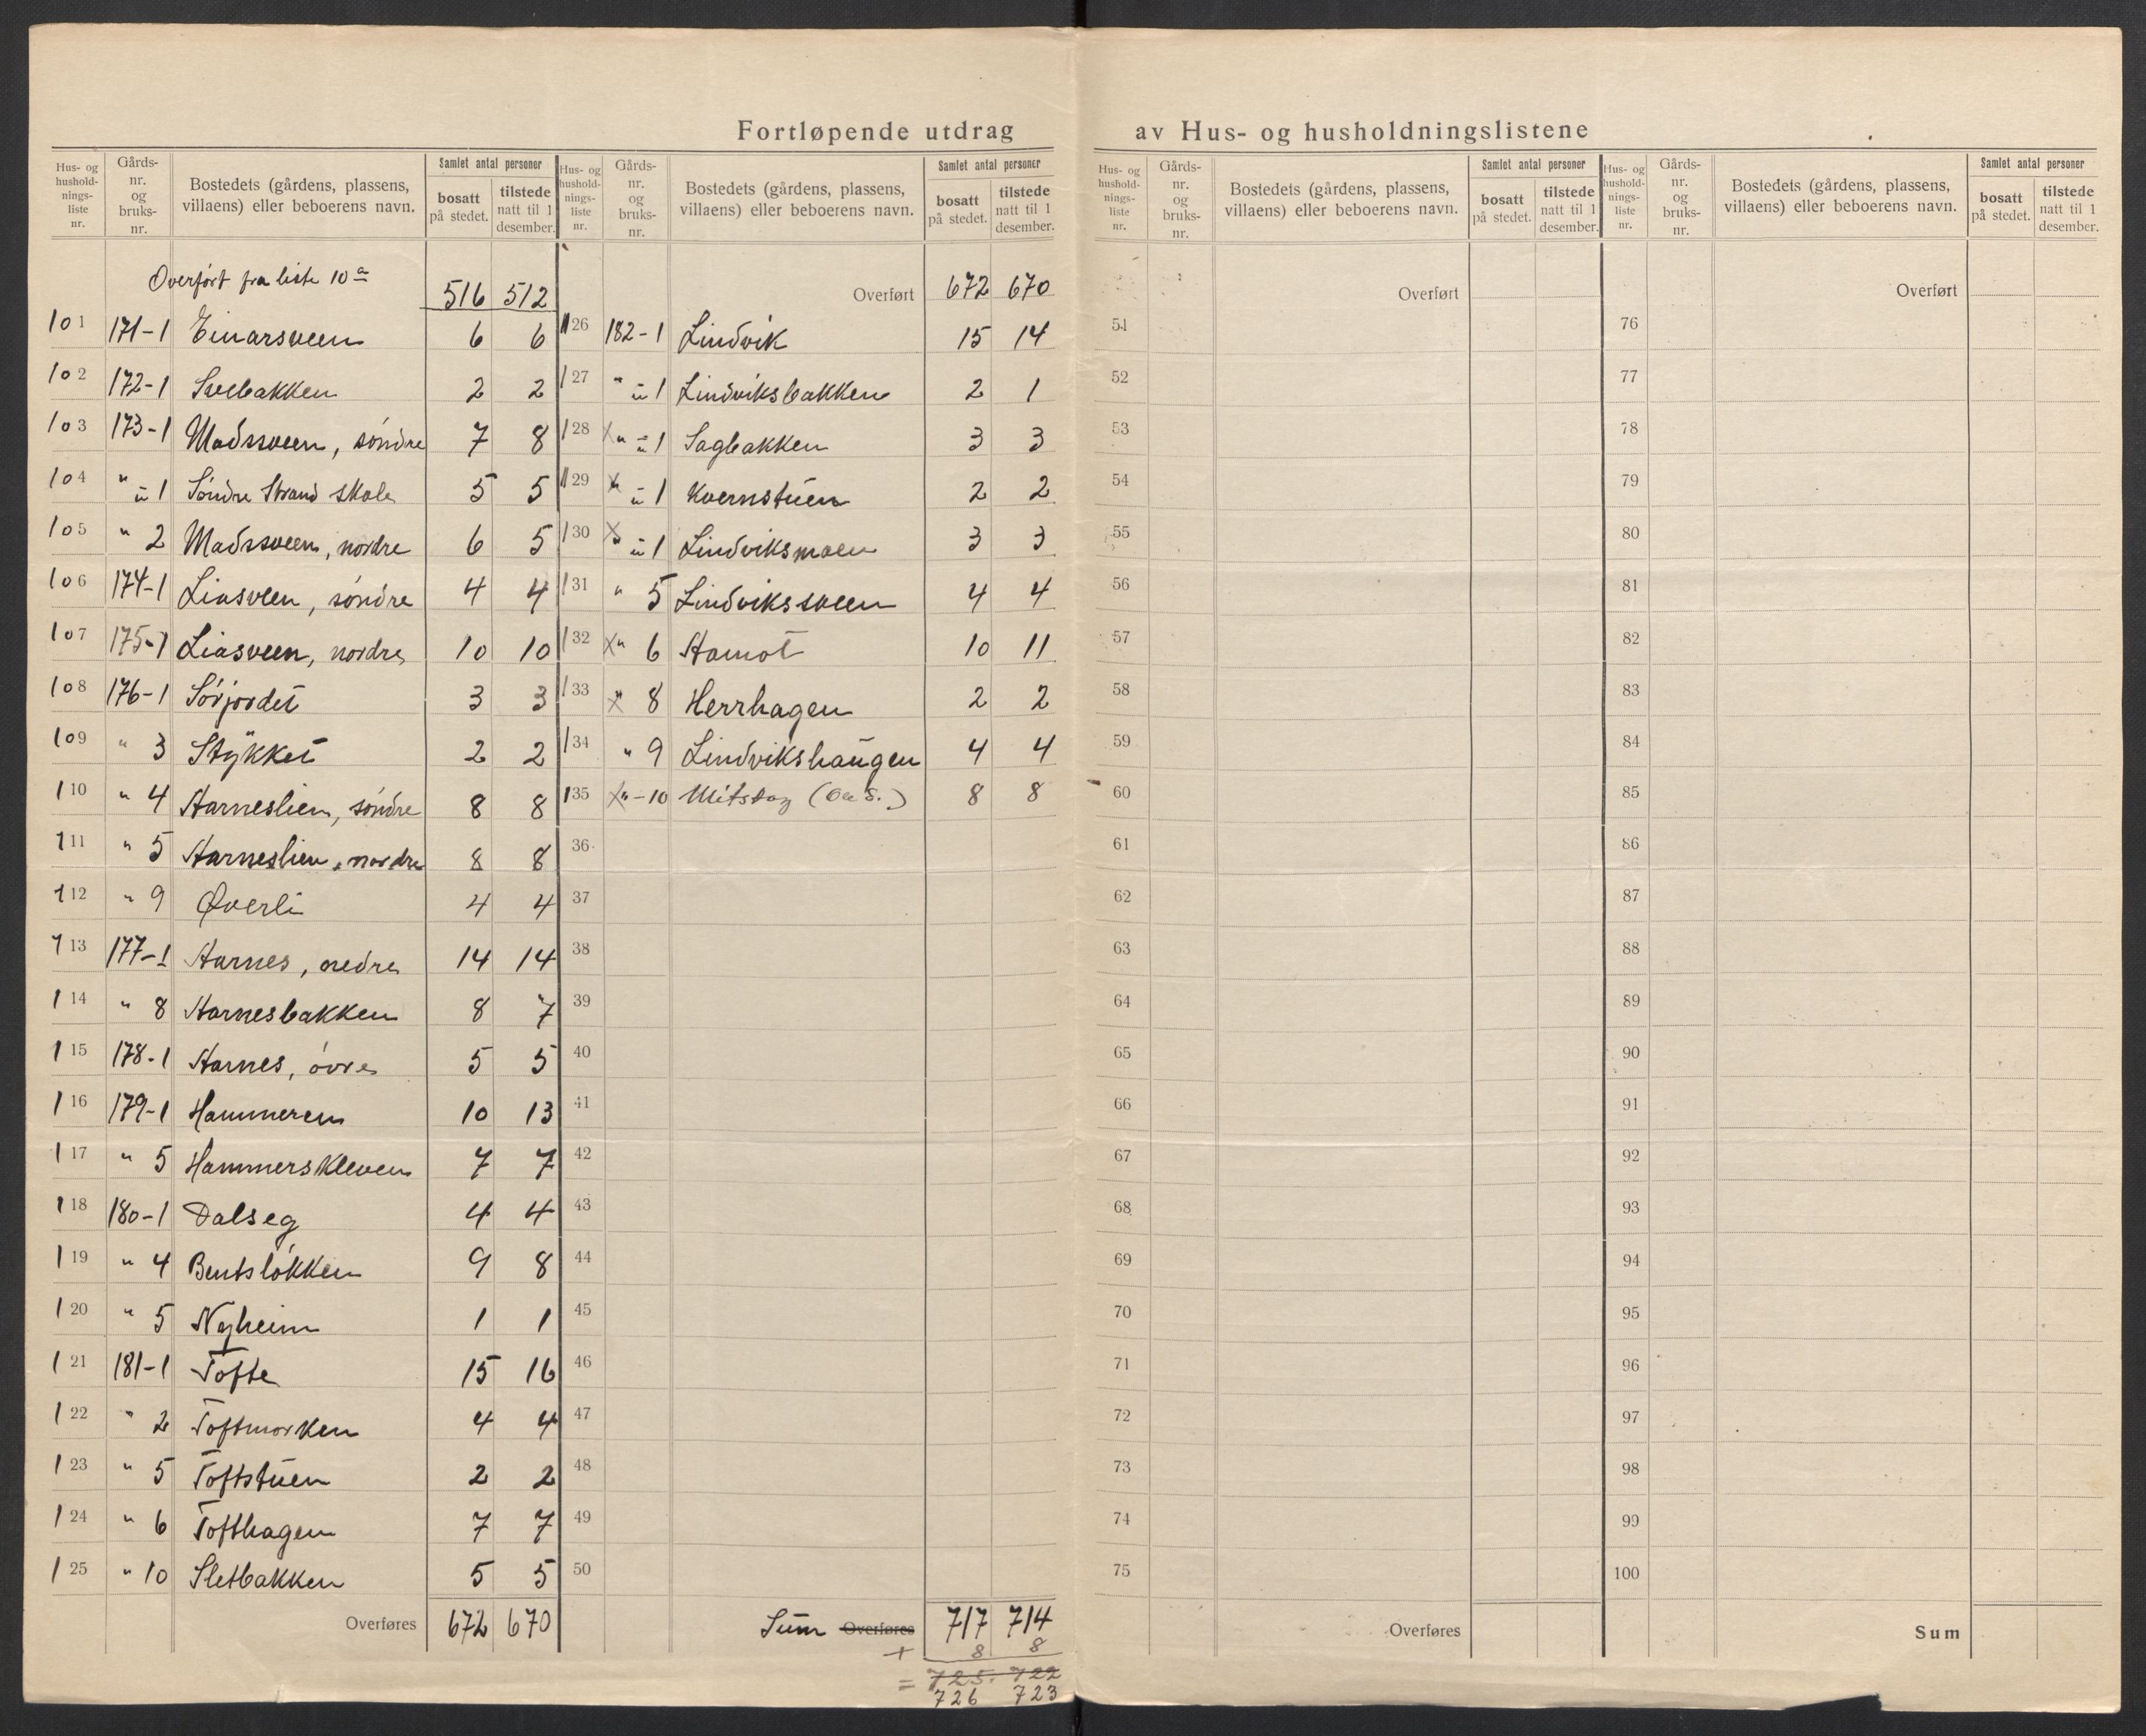 Fortløpende utdrag av Hus- og husholdningslistene
Hus- og hushold-nings-liste nr. Gårds-nr. og bruks-nr. Bostedets (gårdens, plassens, villaens) eller beboerens navn. Samlet antal personer bosatt på stedet. tilstede natt til 1 desember.
Overført fra liste 10a 516 512
101 171-1 Einarsveen 6 6
102 172-1 Svebakken 2 2
103 173-1 Madssveen, søndre 7 8
104 " ü 1 Søndre Strand skole 5 5
105 " 2 Madssveen, nordre 6 5
106 174-1 Liasveen, søndre 4 4
107 175-1 Liasveen, nordre 10 10
108 176-1 Sørjordet 3 3
109 " 3 Stykket 2 2
110 " 4 Aarneslien, søndre 8 8
111 " 5 Aarneslien, nordre 8 8
112 " 9 Øverli 4 4
113 177-1 Aarnes, nedre 14 14
114 " 8 Aarnesbakken 8 7
115 178-1 Aarnes, øvre 5 5
116 179-1 Hammeren 10 13
117 " 5 Hammerskleven 7 7
118 180-1 Dalseg 4 4
119 " 4 Bentsløkken 9 8
120 " 5 Nyheim 1 1
121 181-1 Tofte 15 16
122 " 2 Toftmorken 4 4
123 " 5 Toftstuen 2 2
124 " 6 Tofthagen 7 7
125 " 10 Sletbakken 5 5
Overføres 672 670
Hus- og hushold-nings-liste nr. Gårds-nr. og bruks-nr. Bostedets (gårdens, plassens, villaens) eller beboerens navn. Samlet antal personer bosatt på stedet. tilstede natt til 1 desember.
Overført 672 670
126 182-1 Lindvik 15 14
127 " ü 1 Lindviksbakken 2 1
128 X " ü 1 Sagbakken 3 3
129 X " ü 1 Kvernstuen 2 2
130 X " ü 1 Lindviksmoen 3 3
131 " 5 Lindvikssveen 4 4
132 X " 6 Aamot 10 11
133 X " 8 Herrhagen 2 2
134 " 9 Lindvikshaugen 4 4
135 X " -10 8 8
36
37
38
39
40
41
42
43
44
45
46
47
48
49
50
Sum Overføres 717 714
+ 8 8
= 725. 722
726 723
Hus- og hushold-nings-liste nr. Gårds-nr. og bruks-nr. Bostedets (gårdens, plassens, villaens) eller beboerens navn. Samlet antal personer bosatt på stedet. tilstede natt til 1 desember.
Overført
51
52
53
54
55
56
57
58
59
60
61
62
63
64
65
66
67
68
69
70
71
72
73
74
75
Overføres
Hus- og hushold-nings-liste nr. Gårds-nr. og bruks-nr. Bostedets (gårdens, plassens, villaens) eller beboerens navn. Samlet antal personer bosatt på stedet. tilstede natt til 1 desember.
Overført
76
77
78
79
80
81
82
83
84
85
86
87
88
89
90
91
92
93
94
95
96
97
98
99
100
Sum